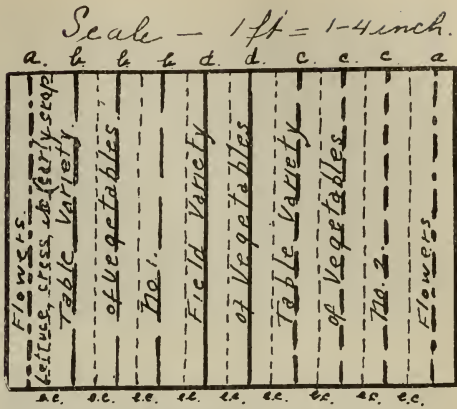 Scale - 1 ft = 1-4 inch.
a. b. b. b d. d. c. c. c a
Flowers.
Lettuce, cress, in (early crop
Table Variety.
of Vegetables.
No. 1.
Field Variety
of Vegetables
Table Variety
of Vegetables.
No. 2.
Flowers
e.c. e.c. e.c. e.c. e.c. e.c. e.c. e.c. e.c.